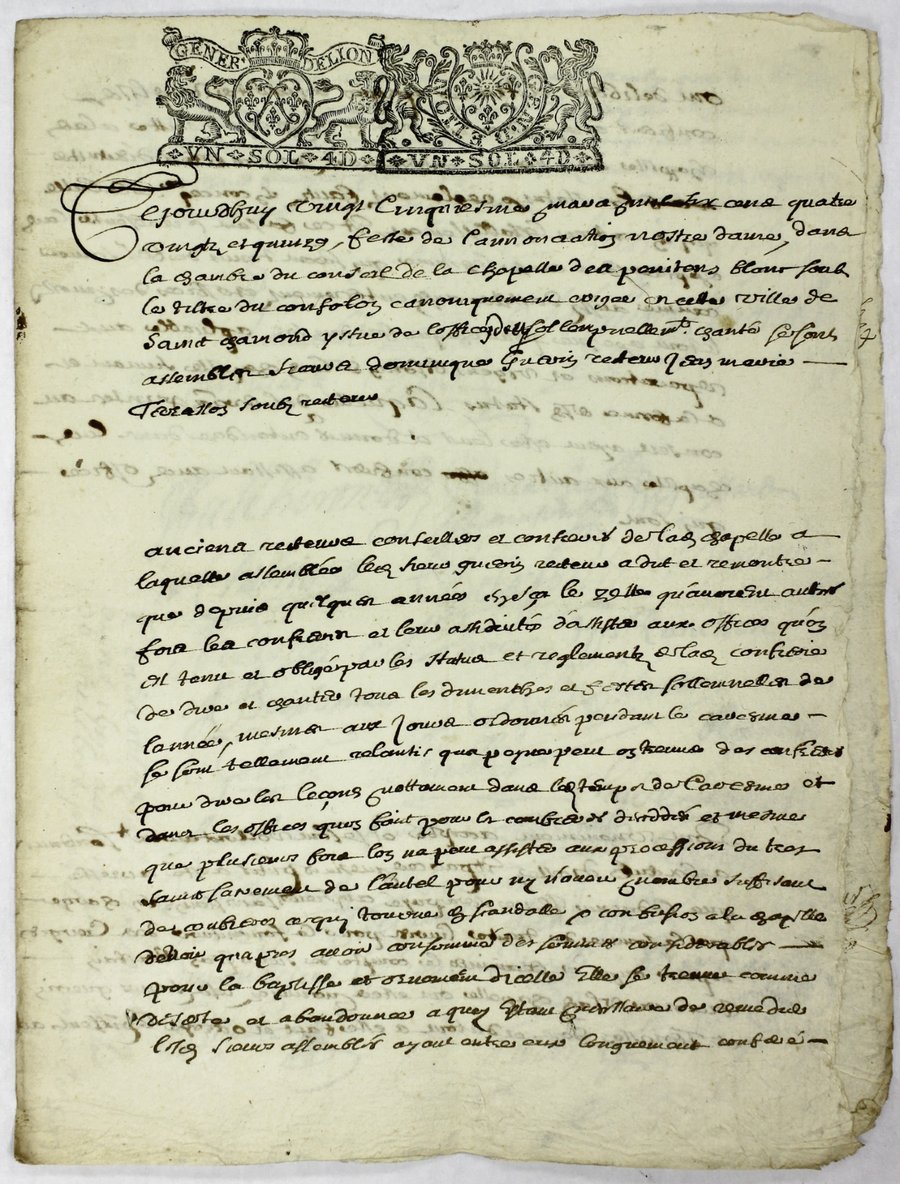 GENER DELION
VN SOL 4D
VN SOL 4D
Cejourdhuy vingt cinquiesme mars cens quatre
vingtz et quinze, feste de lannonciation nostre dame, dans
la chambre du conseil de la chapelle des penitens blanc soub
le tiltre du confalon canoniquement erigée en cette ville de
saint chamond yssue de loffice sollempnellemt chanté se sont
assemblés sieurs dominique Guerin recteur Jean marie
Terasson soubz recteur
anciens recteurs conseillers et confreres de lad chapelle a
laquelle assemblée led sieur guerin recteur a dit et remontre
que depuis quelques années en ça le zelle quavoient autre
fois les confreres et leur assiduité dassister aux offices quon
est tenu et obligé par les statuts et reglements de lad confrerie
de dire et chanter tous les dimenches et festes sollennelles de
lannée, mesmes aux jours ordonnés pendant le caresme
se sont tellement relantis qua peyne peut on treuver des confreres
pour dire les leçons nottament dans le temps de Caresme et
dans les offices quon fait pour les confreres decedés et mesme
que plusieurs fois lon na peut assister aux processions du tres
saint sacrement de lautel pour ny avoir nombre suffisant
de confreres ce qui tourne a scandalle et confusion a la chapelle
de voir quapres avoir consommé des sommes considerables
pour la batisse et ornement dicelle elle se treuve comme
deserte et abandonnée a quoy estant necessaire de remedier
lesd sieurs assemblés ayant entre eux longuement conferé